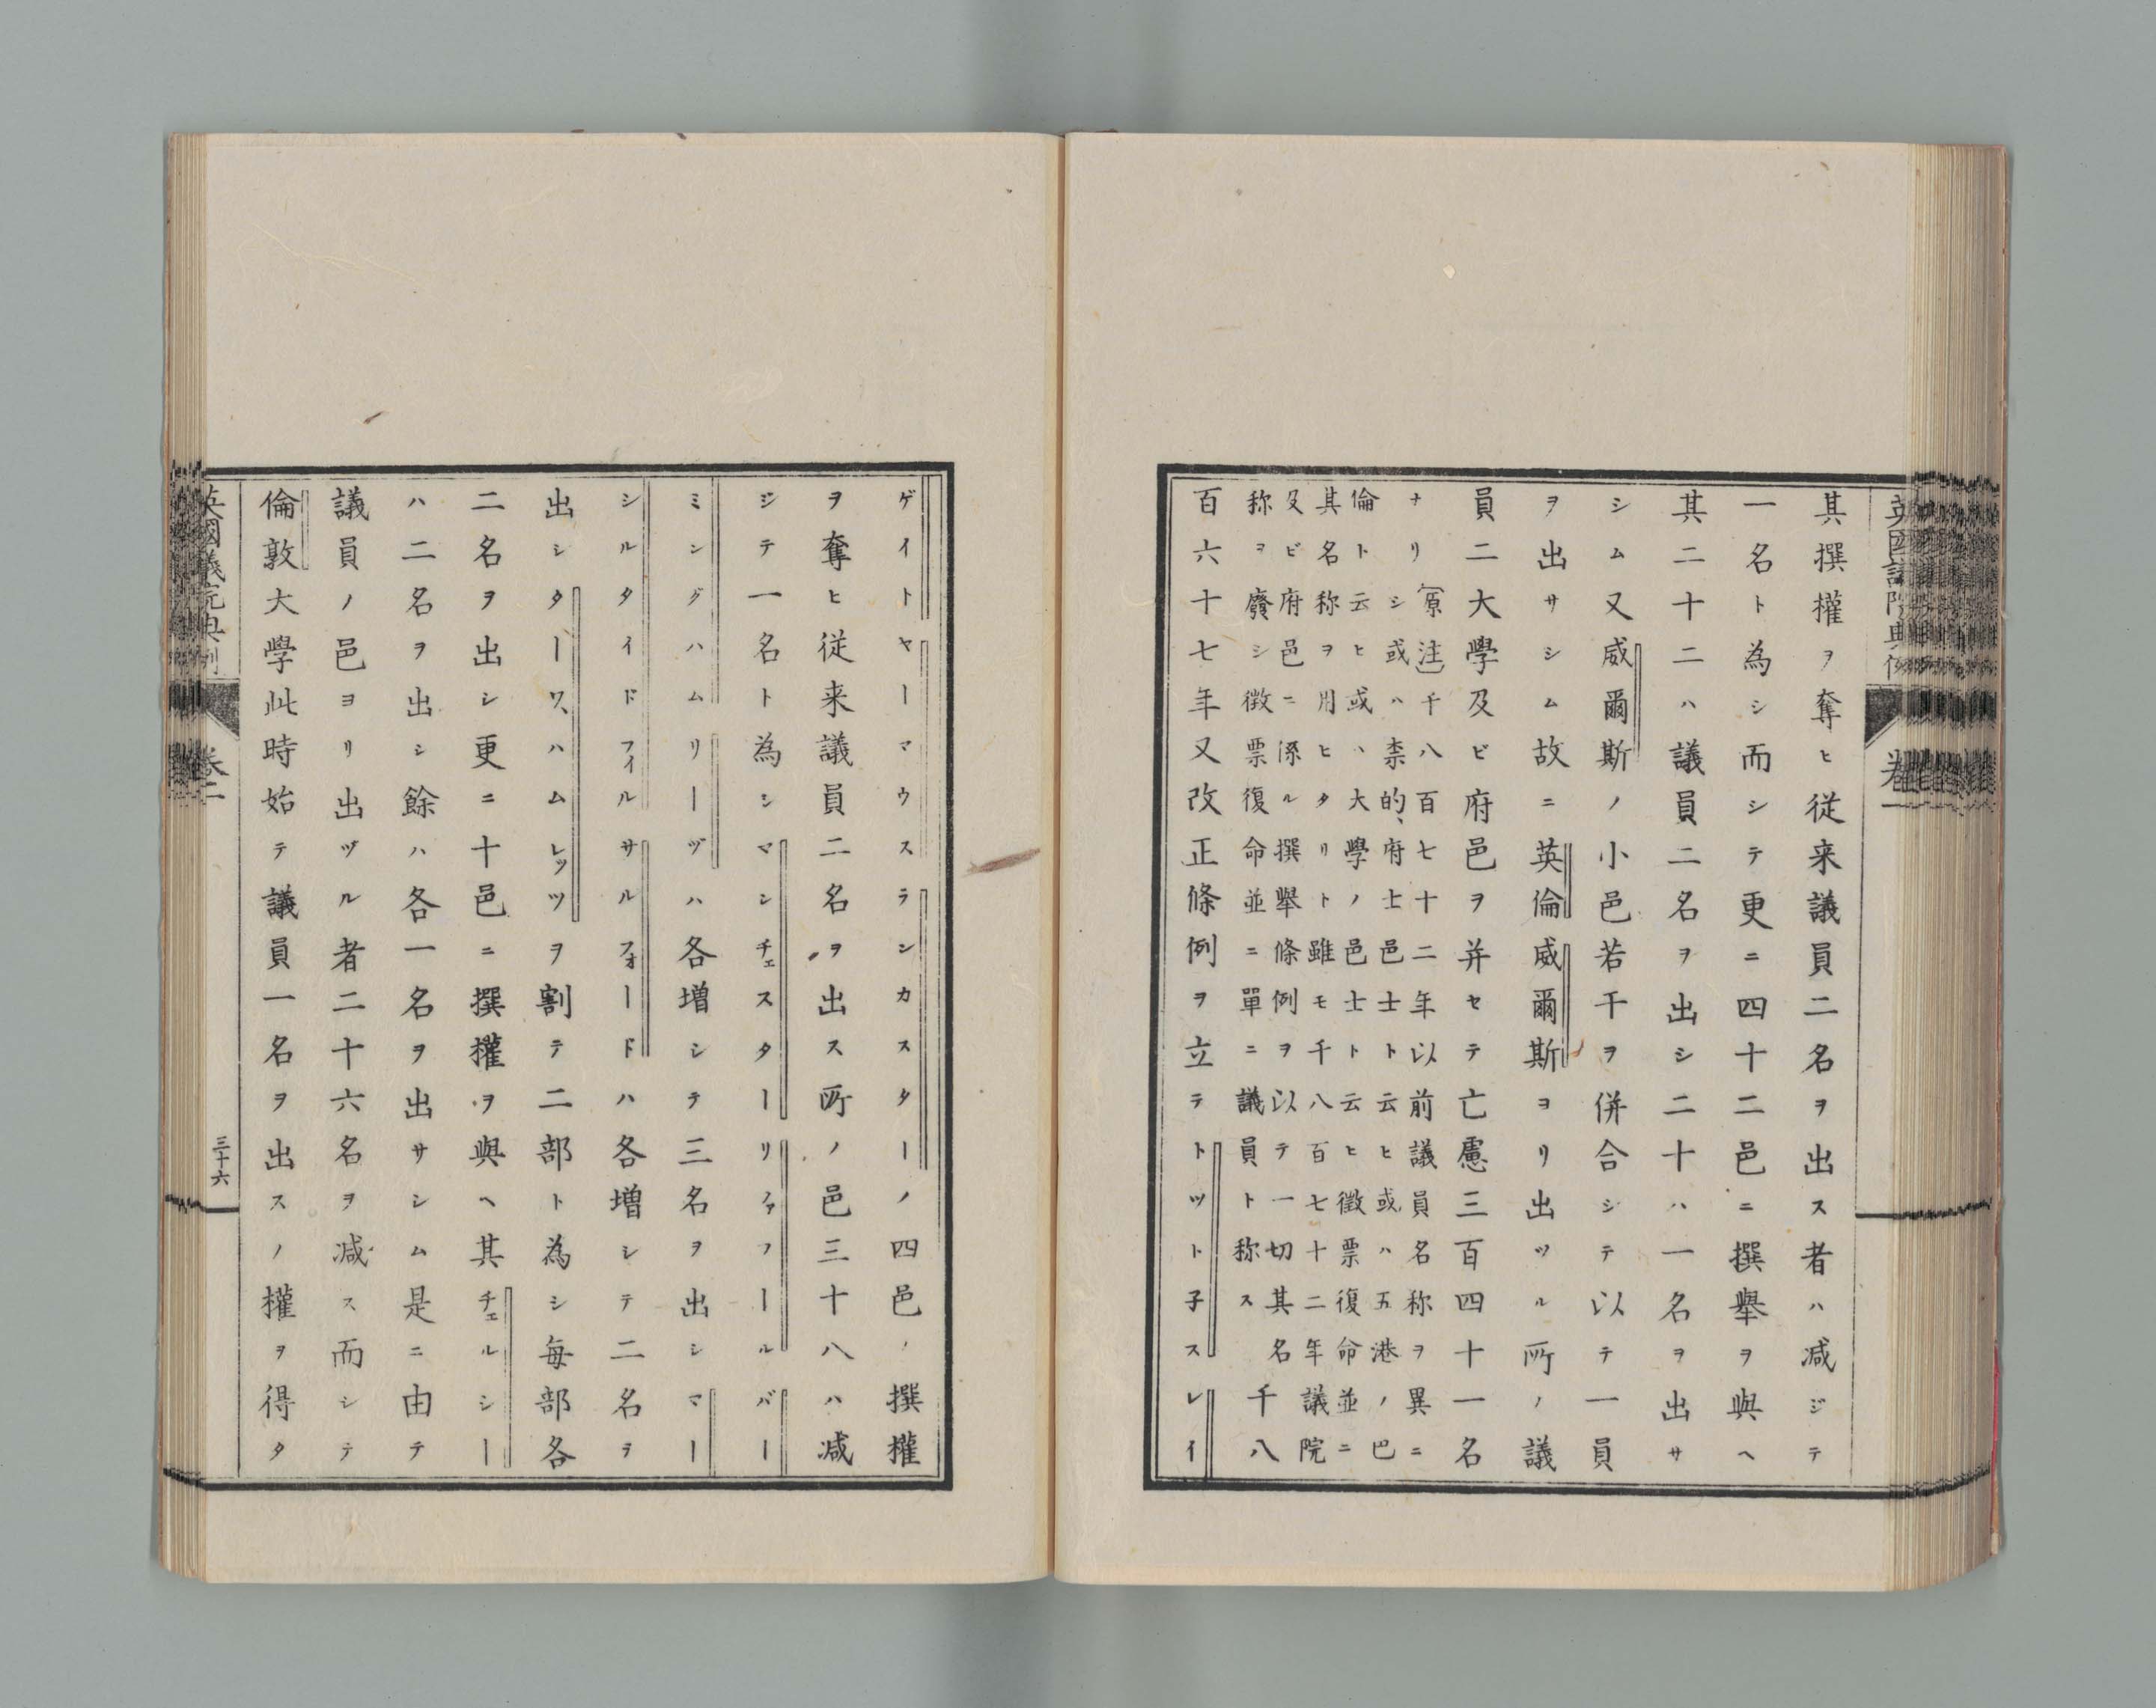 英國議院典例
卷二
其撰權ヲ奪ヒ従来議員二名ヲ出ス者ハ減ジテ
一名ト為シ而シテ更ニ四十二邑ニ撰舉ヲ與ヘ
其二十二ハ議員二名ヲ出シ二十ハ一名ヲ出サ
シム又威爾斯ノ小邑若干ヲ併合シテ以テ一員
ヲ出サシム故ニ英倫威爾斯ヨリ出ツル所ノ議
員二大學及ビ府邑ヲ并セテ亡慮三百四十一名
ナリ〔原注〕千八百七十二年以前議員名称ヲ異ニ
シ或ハ柰的、府士邑士ト云ヒ或ハ五港ノ巴
倫ト云ヒ或ハ大學ノ邑士ト云ヒ徴票復命並ニ
其名称ヲ用ヒタリト雖モ千八百七十二年議院
及ビ府邑ニ係ル撰舉條例ヲ以テ一切其名
称ヲ廢シ徴票復命並ニ單ニ議員ト称ス
千八
百六十七年又改正條例ヲ立テトツト子スレイ
ゲイトヤーマウスランカスターノ四邑ノ撰權
ヲ奪ヒ従来議員二名ヲ出ス所ノ邑三十八ハ減
ジテ一名ト為シマンチェスターリファフールバー
ミングハムリーヅハ各増シテ三名ヲ出シマー
シルタイドフイルサルフォードハ各増シテ二名ヲ
出シターワハムレッツヲ割テ二部ト為シ毎部各
二名ヲ出シ更ニ十邑ニ撰權ヲ與ヘ其チェルシー
ハ二名ヲ出シ餘ハ各一名ヲ出サシム是ニ由テ
議員ノ邑ヨリ出ヅル者二十六名ヲ減ス而シテ
倫敦大學此時始テ議員一名ヲ出スノ權ヲ得タ
英國議院典例
卷二
三十六